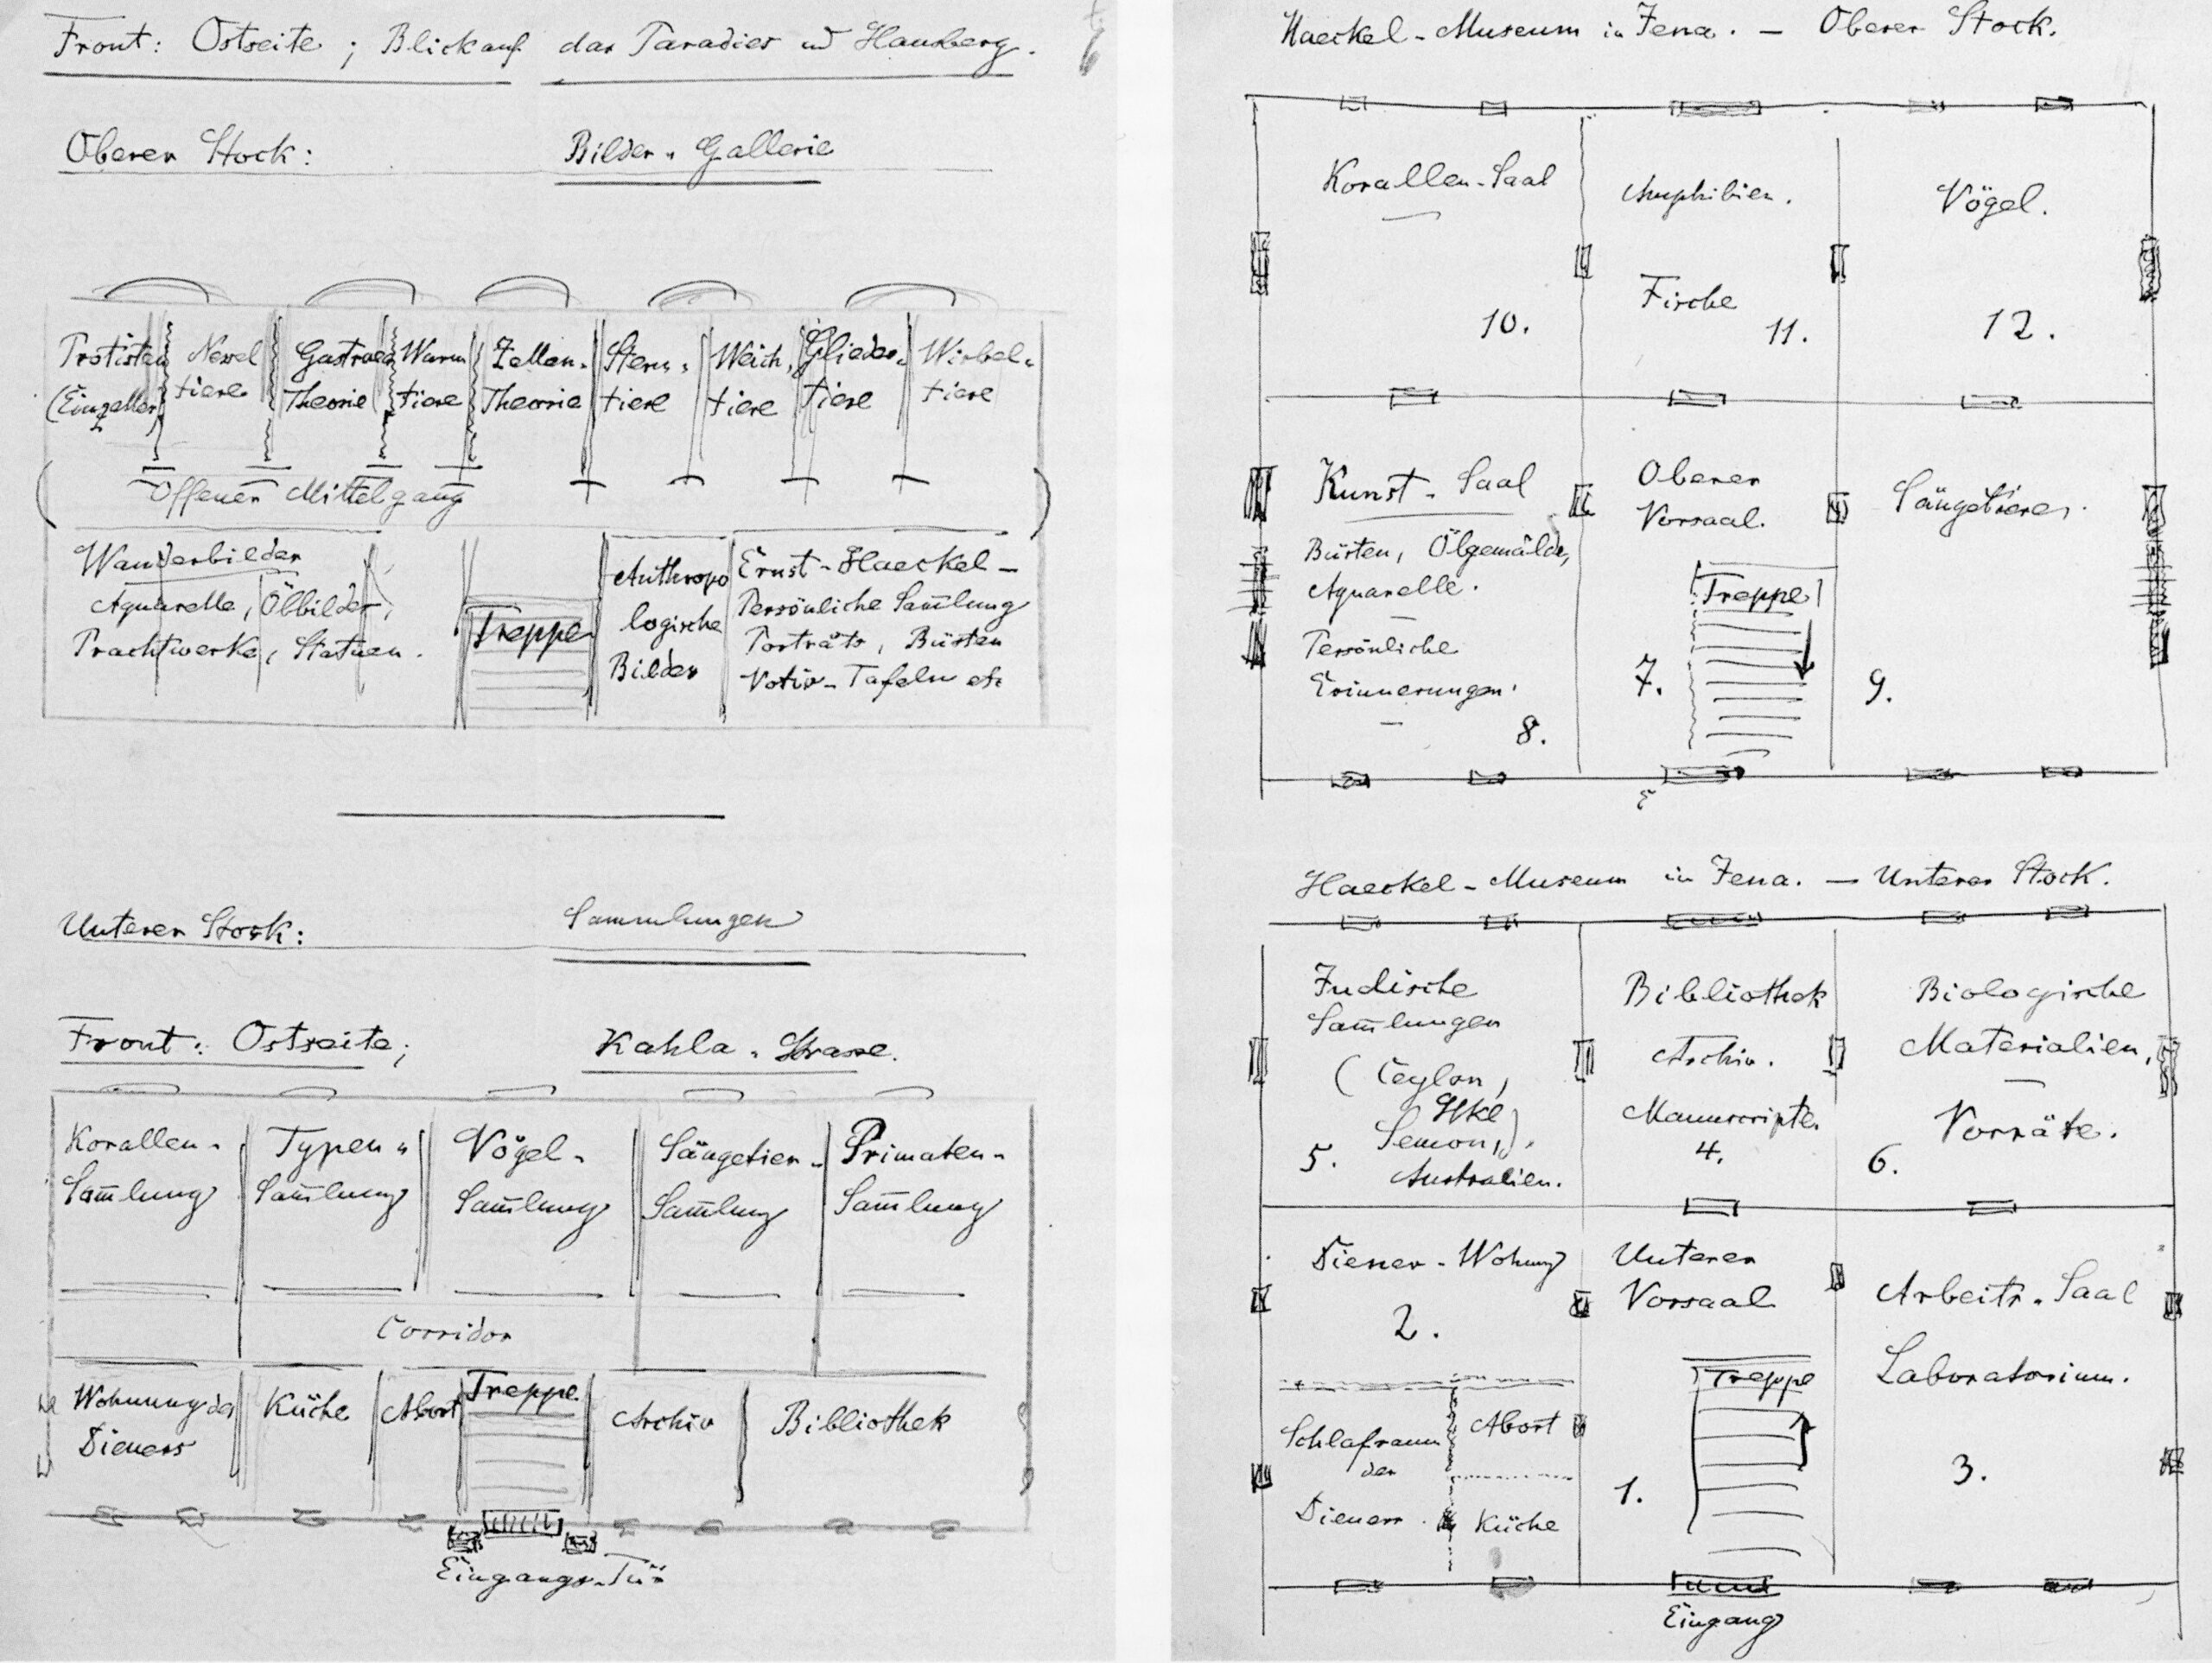 Front: Ostseite; Blick auf das Paradies und Hausberg.
Oberer Stock: Bilder-Gallerie
Protisten (Einzeller)
Nesseltiere
Gastraea Theorie
Wurmtiere
Zellen-Theorie
Stern-tiere
Weich-tiere
Glieder-tiere
Wirbel-tiere
Offener Mittelgang
Wanderbilder
Aquarelle, Ölbilder,
Prachtwerke, Statuen.
Treppe
Anthropo
logische
Bilder
Ernst-Haeckel-
Persönliche Sam̄lung
Porträts, Büsten
Votiv-Tafeln etc
Unterer Stock: Sammlungen
Front: Ostseite; Kahla-Strasse.
Korallen-
Sam̄lung
Typen-
Sam̄lung
Vögel-
Sam̄lung
Säugetier-
Sam̄lung
Primaten-
Sam̄lung
Corridor
Wohnung des
Dieners
Küche
Abort
Treppe
Archiv
Bibliothek
Eingangs-Tür
Haeckel-Museum in Jena. — Oberer Stock.
Korallen-Saal
10.
Amphibien.
Fische
11.
Vögel.
12.
Kunst-Saal
Büsten, Ölgemälde,
Aquarelle.
Persönliche
Erinnerungen.
8.
Oberer
Vorsaal.
Treppe
7.
Säugetiere.
9.
Haeckel-Museum in Jena. — Unterer Stock.
Indische
Sam̄lungen
(Ceylon,
Hkl
Semon,).
Australien.
5.
Bibliothek
Archiv.
Manuscripte.
4.
Biologische
Materialien,
Vorräte.
6.
Diener-Wohnung
2.
Schlafraum
des
Dieners.
Abort
Küche
Unterer
Vorsaal
Treppe
1.
Arbeits-Saal
Laboratorium.
3.
Eingang